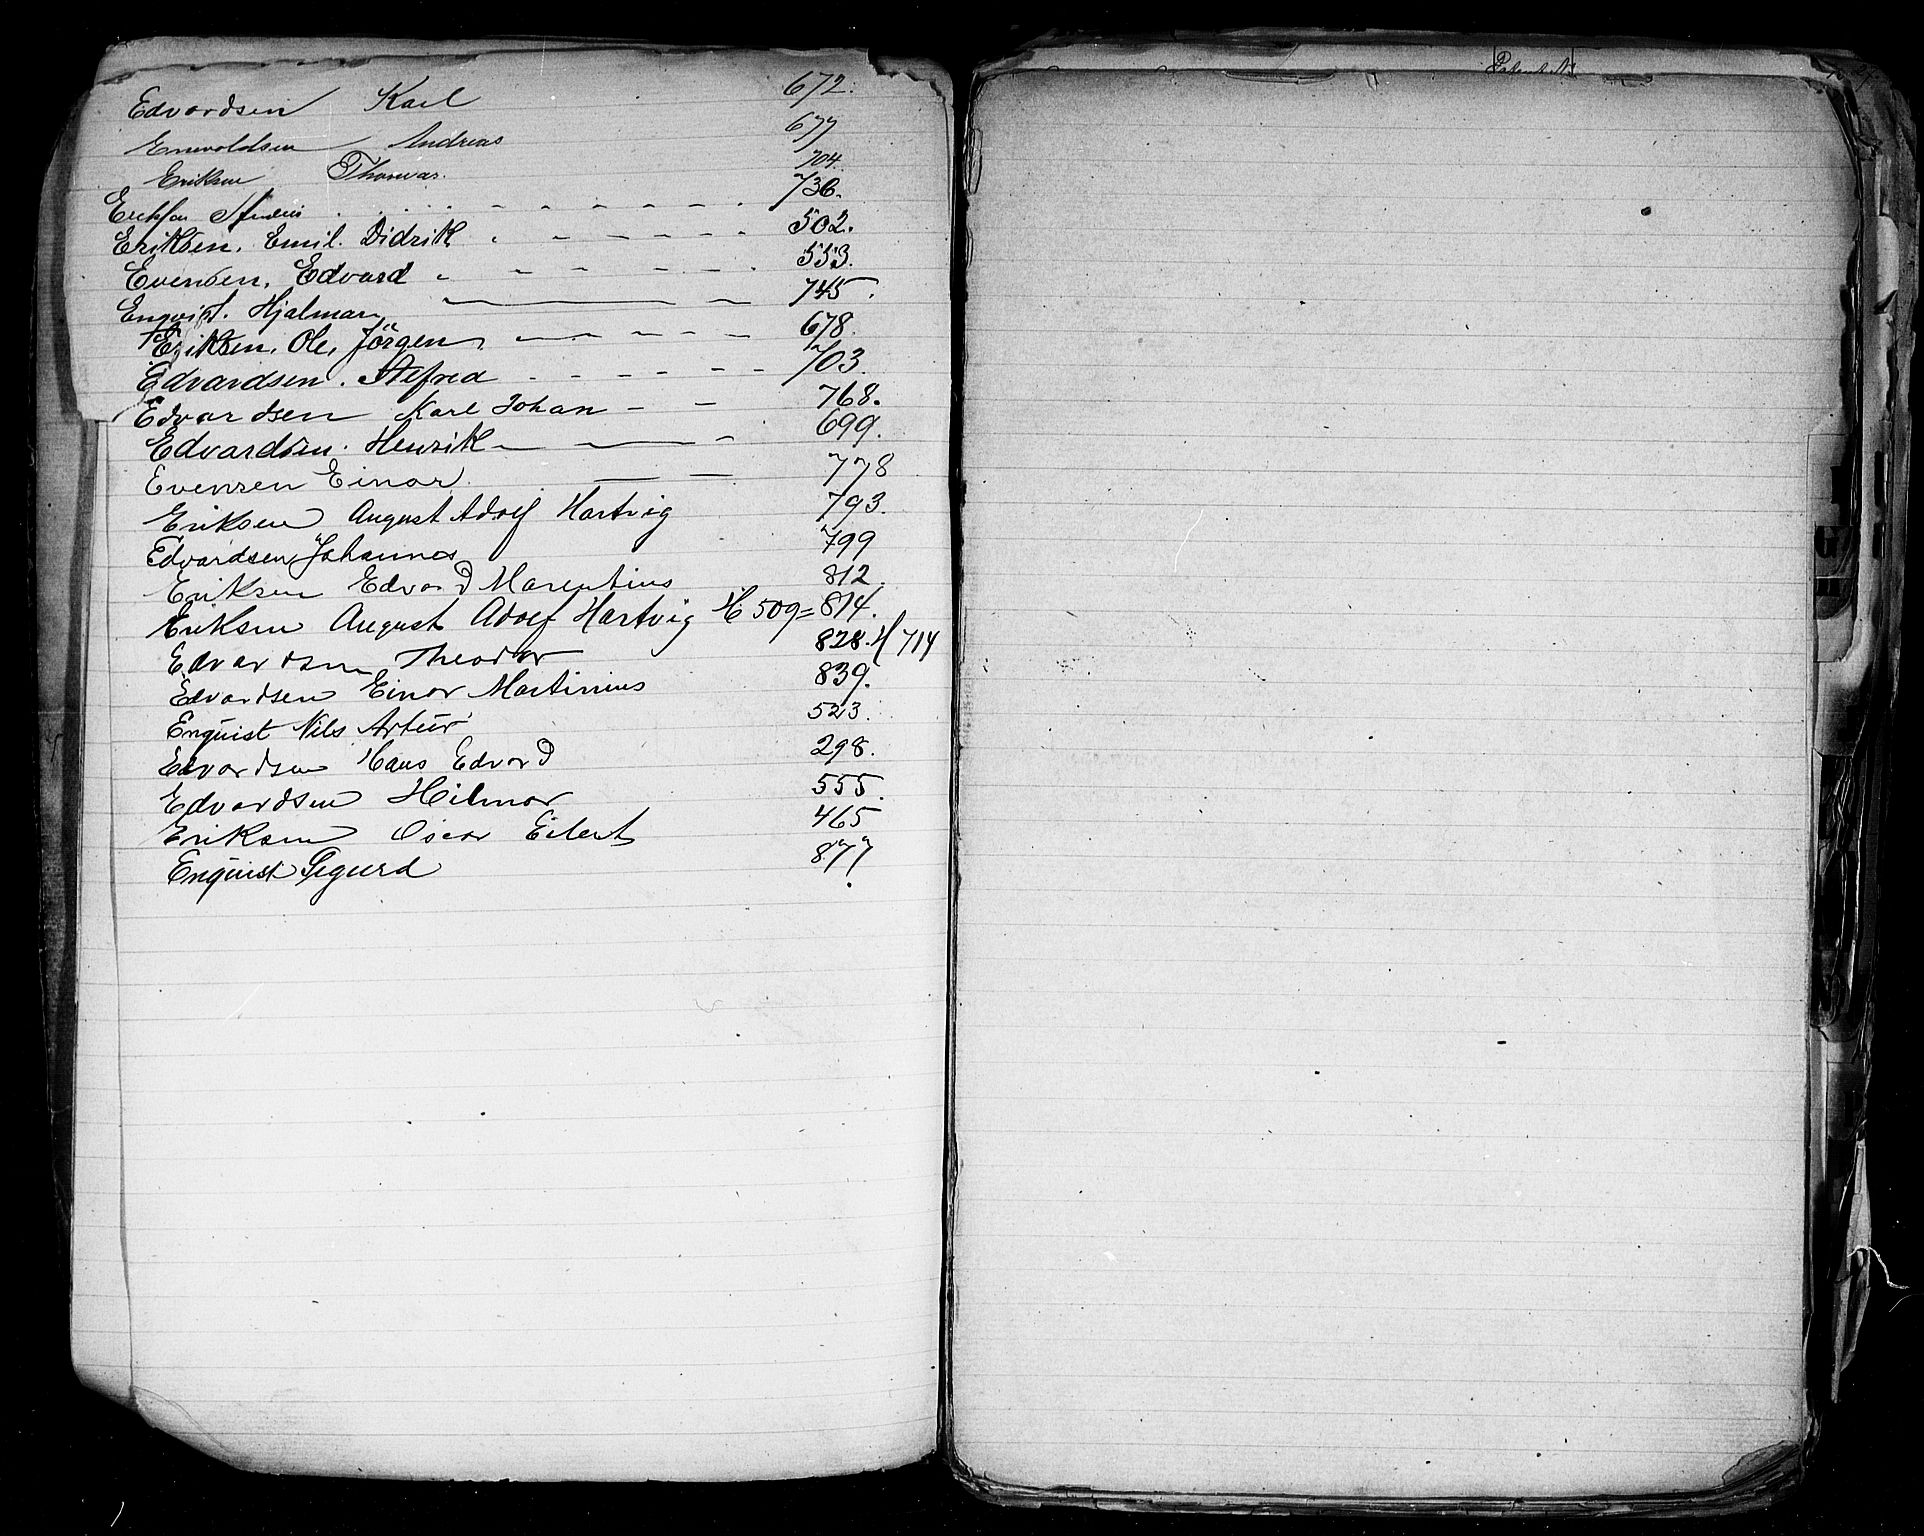 Edvardsen Karl 672.
Enevoldsen Andreas 677
Eriksen Thorvar. 704.
736.
Eriksen. Emil. Didrik 502.
Evensen. Edvard 553.
Enqvist. Hjalmar 745.
Eriksen. Ole, Jörgen 678.
Edvardsen. Alfred 703.
Edvardsen Karl Johan 768.
Edvardsen. Henrik 699.
Evensen Einar. 778
Eriksen August Adolf Hartvig 793.
Edvardsen Johannes 799
Eriksen Edvard Marentius 812.
Eriksen August Adolf Hartvig H 509 = 814.
Edvardsen Theodor 828. H 714
Edvardsen Einar Martinius 839.
Enquist Nils Artur 523.
Edvardsen Hans Edvard 298.
Edvardsen Hilmar 555.
Eriksen Oscar Eilert 465
Enquist Sigurd 877.